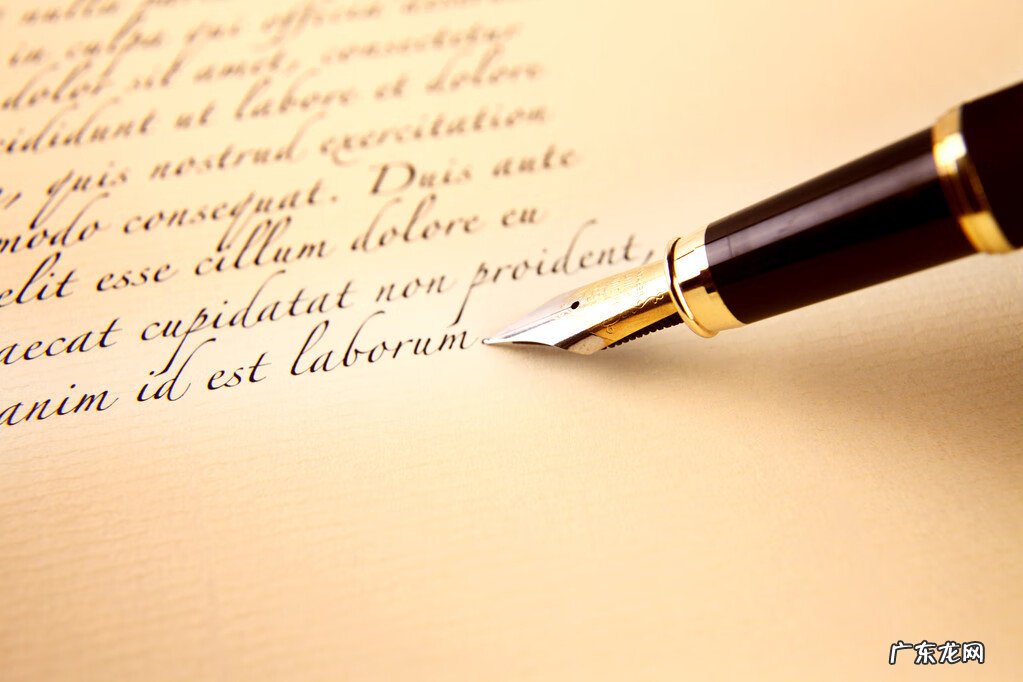 nulla
in culpa qui officia
dolor sit amet, consectetur
cididunt ut labore et dolore
, quis nostrud exercitation
modo consequat. Duis aute
elit esse cillum dolore eu
aecat cupidatat non proident,
anim id est laborum.
广东龙网